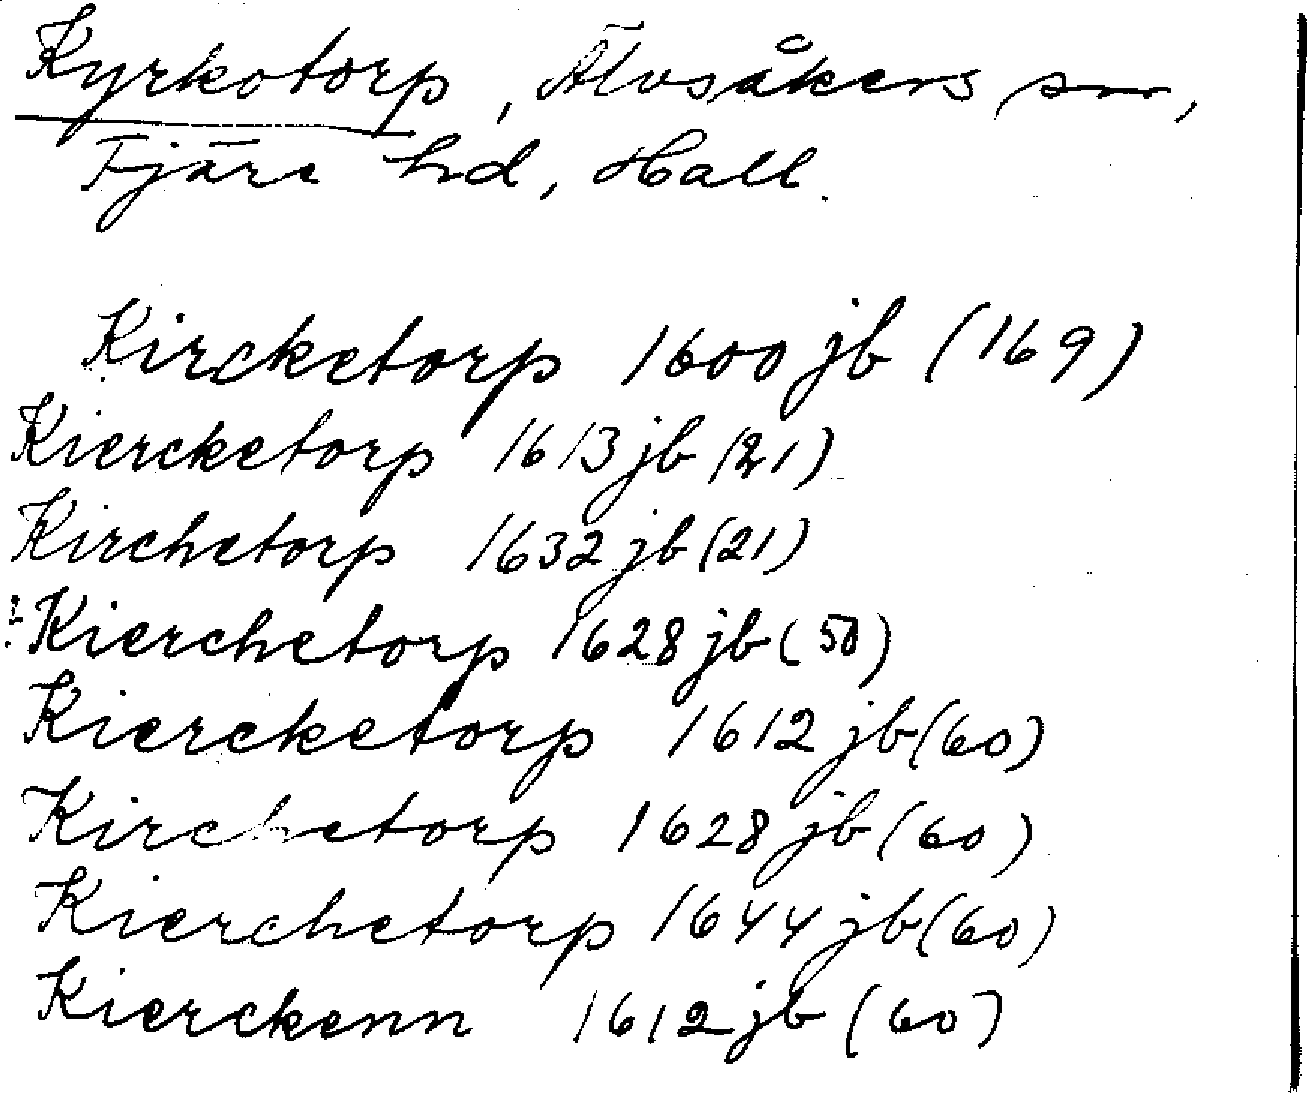 Kyrkotorp, Älvsåkers sn,
Fjäre hd, Hall.
Kircketorp 1600 jb (169)
Kiercketorp 1613 jb (21)
Kirchetorp 1632 jb (21)
Kierchetorp 1628 jb (50)
Kiercketorp 1612 jb (60)
Kirchetorp 1628 jb (60)
Kierchetorp 1644 jb (60)
Kierckenn 1612 jb (60)